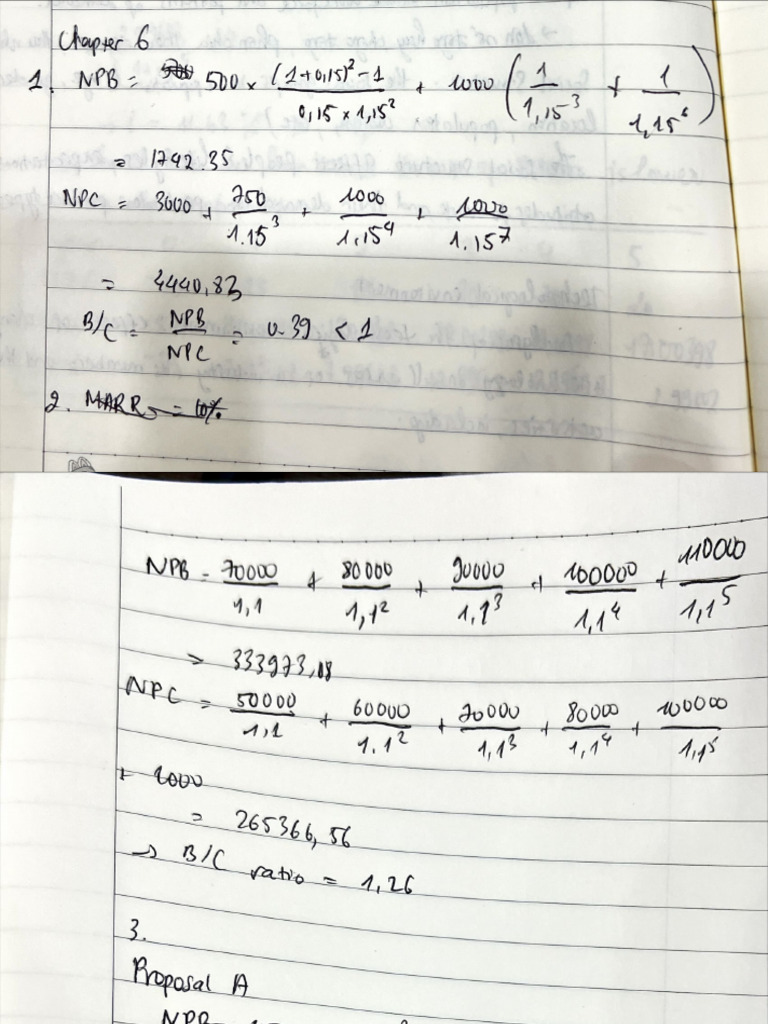 Chapter 6
1. NPB = 500 500 × ((1+0,15)² - 1)/(0,15 × 1,15²) + 1000 (1/1,15³ + 1/1,15⁶)
= 1742.35
NPC = 3000 + 750/1.15³ + 1000/1,15⁴ + 1000/1.15⁷
= 4440,83
B/C = NPB/NPC = 0.39 < 1
2. MARR = 10%
NPB = 70000/1,1 + 80000/1,1² + 90000/1,1³ + 100000/1,1⁴ + 110000/1,1⁵
= 333973,18
NPC = 50000/1,1 + 60000/1.1² + 70000/1,1³ + 80000/1,1⁴ + 100000/1,1⁵
+ 1000
= 265366,56
→ B/C ratio = 1,26
3.
Proposal A
NPB